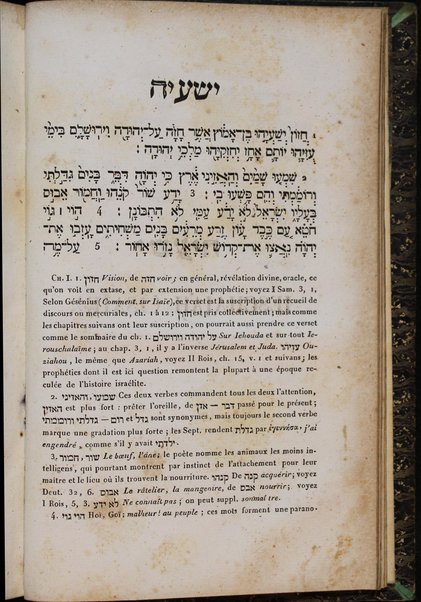 ישעיה
1 חֲזוֹן יְשַׁעְיָהוּ בֶן־אָמוֹץ אֲשֶׁר חָזָה עַל־יְהוּדָה וִירוּשָׁלָ͏ִם בִּימֵי
עֻזִּיָּהוּ יוֹתָם אָחָז יְחִזְקִיָּהוּ מַלְכֵי יְהוּדָה׃
2 שִׁמְעוּ שָׁמַיִם וְהַאֲזִינִי אֶרֶץ כִּי יְהוָֹה דִּבֵּר בָּנִים גִּדַּלְתִּי
וְרוֹמַמְתִּי וְהֵם פָּשְׁעוּ בִי׃ 3 יָדַע שׁוֹר קֹנֵהוּ וַחֲמוֹר אֵבוּס
בְּעָלָיו יִשְׂרָאֵל לֹא יָדַע עַמִּי לֹא הִתְבּוֹנָן׃ 4 הוֹי גּוֹי
חֹטֵא עַם כֶּבֶד עָוֹן זֶרַע מְרֵעִים בָּנִים מַשְׁחִיתִים עָזְבוּ אֶת־
יְהוָֹה נִאֲצוּ אֶת־קְדוֹשׁ יִשְׂרָאֵל נָזֹרוּ אָחוֹר׃ 5 עַל־מֶה
Ch. I. 1. חזון Vision, de חזה voir; en général, révélation divine, oracle, ce
qu'on voit en extase, et par extension une prophétie; voyez I Sam. 3, 1,
Selon Gésénius (Comment. sur Isaïe), ce verset est la suscription d'un recueil de
discours ou mercuriales, ch. 1 à 12; חזון est pris collectivement; mais comme
les chapitres suivans ont leur suscription, on pourrait aussi prendre ce verset
comme le sommaire du ch. 1. על יהודה וירושלם Sur Iehouda et sur-tout Ie-
rouschalaïme; au chap. 3, 1, il y a l'inverse Jérusalem et Juda. עזיהו Ou-
ziahou, le même que Azariah, voyez II Rois, ch. 15, v. 1 et suivans; les
prophéties dont il est ici question remontent la plupart à une époque re-
culée de l'histoire israélite.
2. שמעו. והאזיני Ces deux verbes commandent tous les deux l'attention,
אזין est plus fort : prêter l'oreille, de אזן — דבר passé pour le présent;
גדלתי ורוממתי — רום et גדל sont synonymes, mais toujours le second verbe
marque une gradation plus forte; les Sept. rendent גדלתי par ἐγεννησα, j'ai
engendré, comme s'il y avait ילדתי.
3. שור. חמור Le bœuf, l'âne; le poète nomme les animaux les moins in-
telligens, qui pourtant montrent par instinct de l'attachement pour leur
maître et le lieu où ils trouvent la nourriture. קנהו De קנה acquérir; voyez
Deut. 32, 6. אבוס Le râtelier, la mangeoire, de אבס nourrir; voyez
I Rois, 5, 3. לא ידע Ne connaît pas; on peut suppl. son maître.
4. הוי גוי Hoï, Goï; malheur! au peuple; ces mots forment une parano-